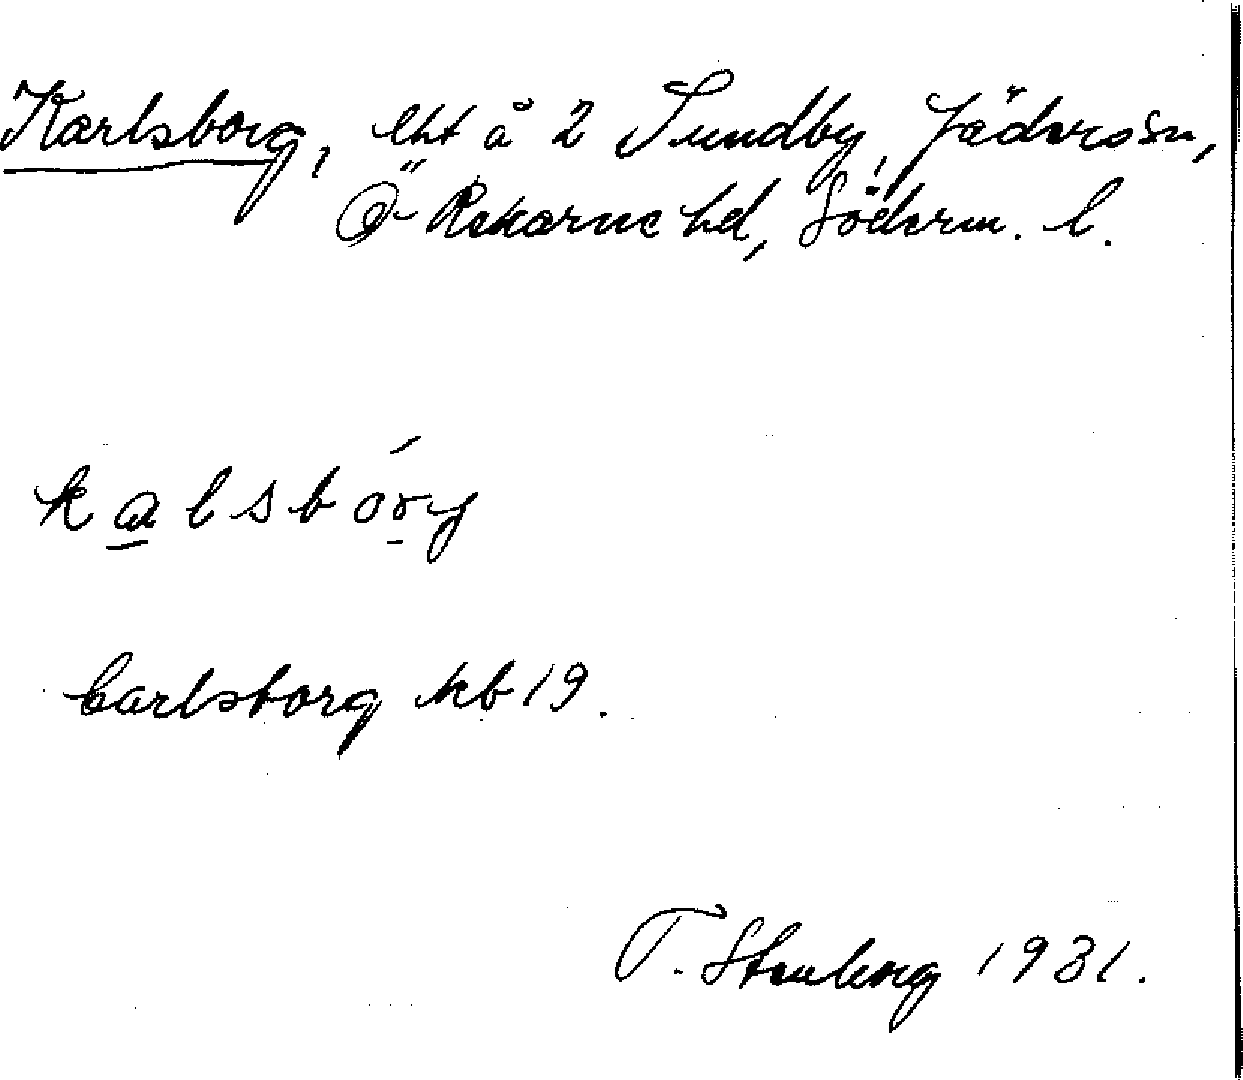 Karlsborg, lht å 2 Sundby, Jäders sn,
Ö- Rekarne hd, Söderm. l.
kalsbórg
Carlsborg kb 19.
T. Stenberg 1931.